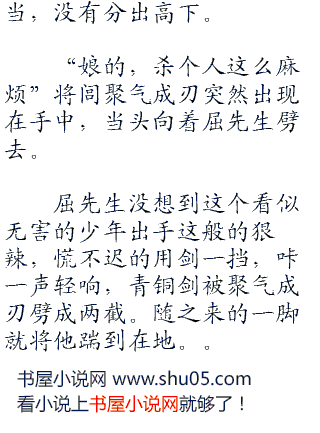 当，没有分出高下。
“娘的，杀个人这么麻
烦”将闾聚气成刃突然出现
在手中，当头向着屈先生劈
去。
屈先生没想到这个看似
无害的少年出手这般的狠
辣，慌不迟的用剑一挡，咔
一声轻响，青铜剑被聚气成
刃劈成两截。随之来的一脚
就将他踹到在地。。
书屋小说网 www.shu05.com
看小说上书屋小说网就够了！